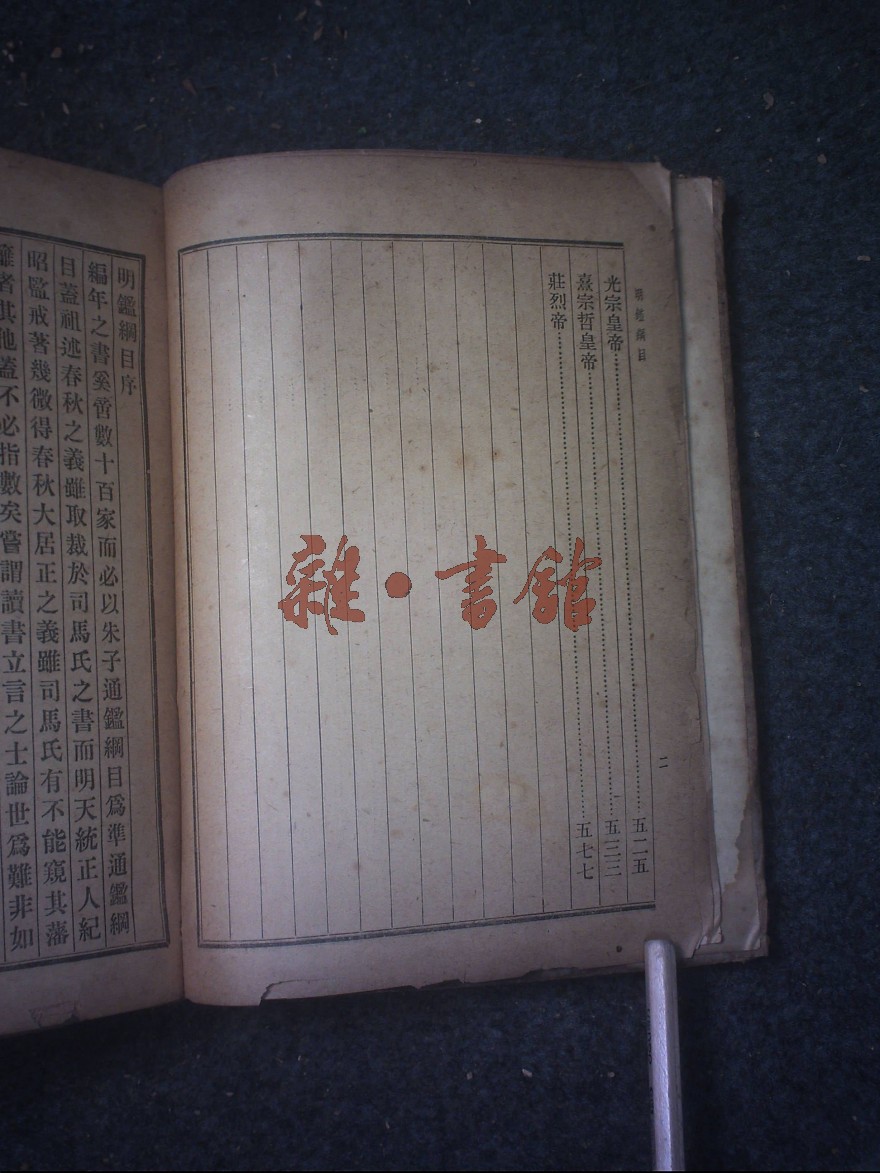 明鑑綱目
光宗皇帝……五二五
熹宗哲皇帝……五三三
莊烈帝……五七七
二
明鑑綱目序
編年之書奚啻數十百家而必以朱子通鑑綱目爲準通鑑綱
目蓋祖述春秋之義雖取裁於司馬氏之書而明天統正人紀
昭監戒著幾微得春秋大居正之義雖司馬氏有不能窺其藩
籬者其他蓋不必指數矣嘗謂讀書立言之士論世爲難非如
雜·書館